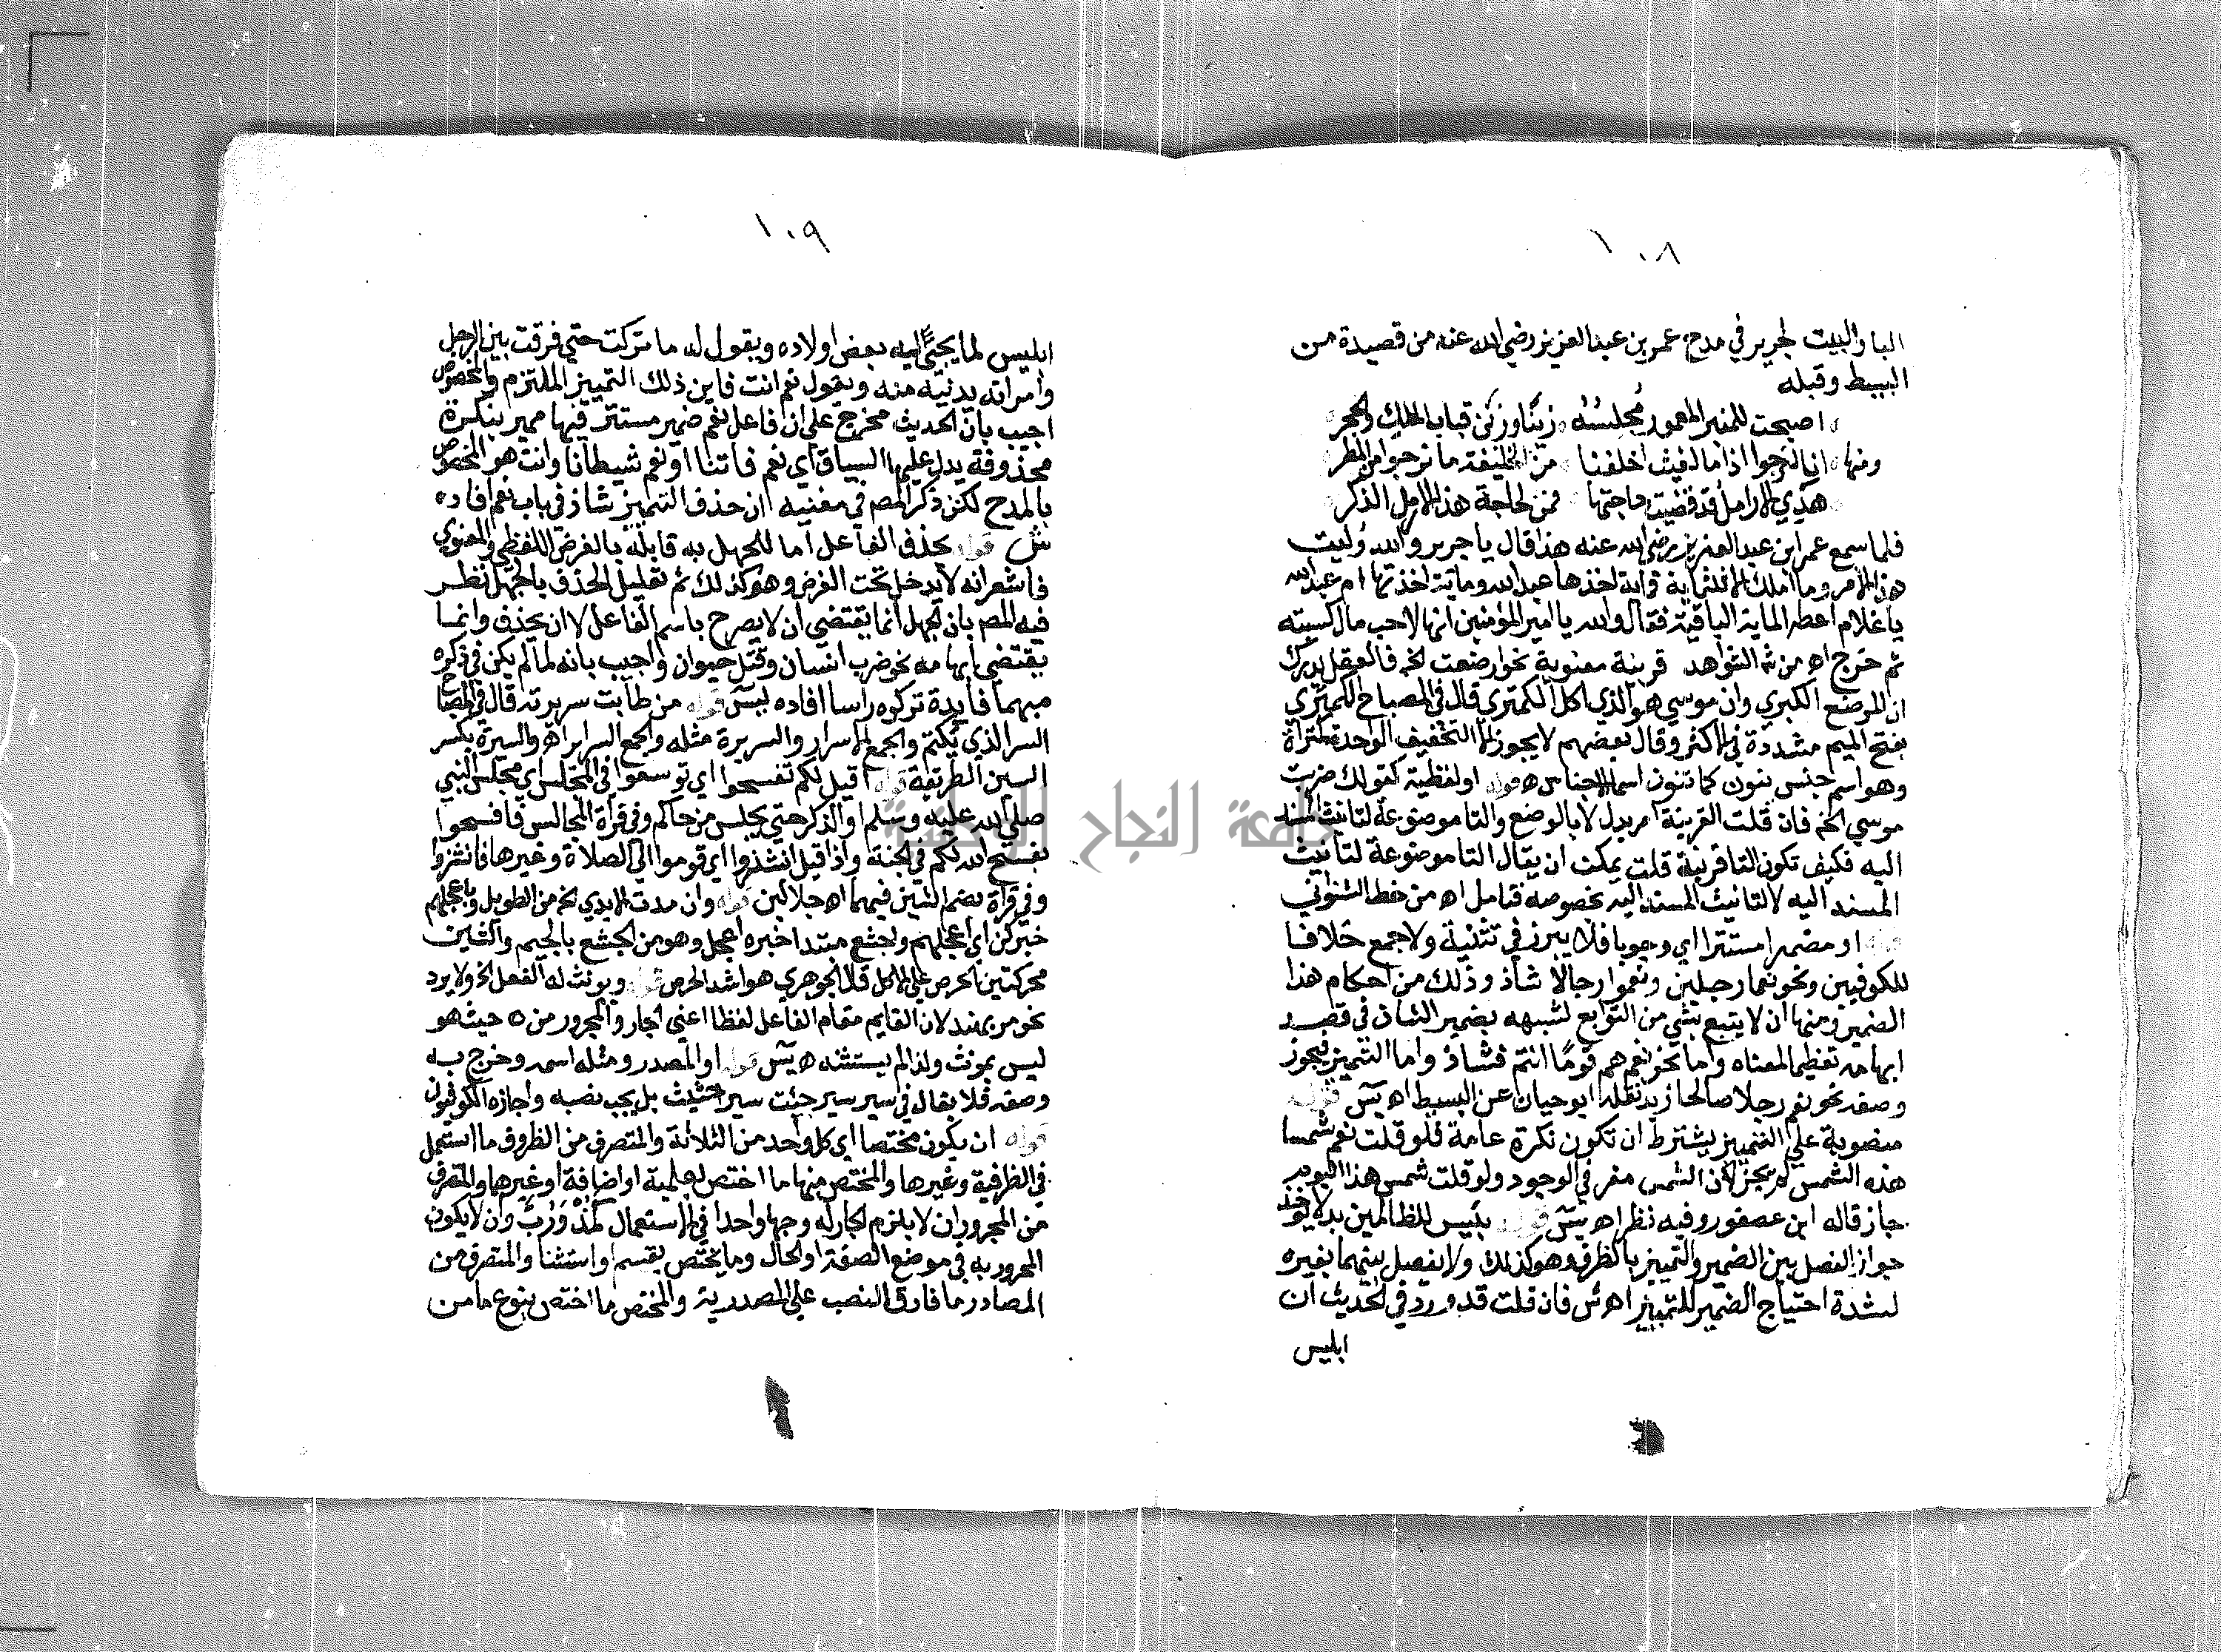 ١٠٨
البا والبيت لجرير في مدح عمر بن عبد العزيز رضي الله عنه من قصيدة من
البسيط وقبله
اصبحت للمنبر المعمور مجلسه زينا وزين قباب الملك والحجر
ومنها انا لنرجوا اذا ما الغيث اخلفنا من الخليفة ما نرجوا من المطر
هذي الارامل قد قضيت حاجتها فمن لحاجة هذا الارمل الذكر
فلما سمع عمر ابن عبد العزيز رضي الله عنه هذا قال يا جرير والله وليت
هذا الامر وما املك الا ثلثماية فماية اخذها عبد الله وماية اخذتها ام عبد الله
يا غلام اعطه الماية الباقية فقال والله يا امير المؤمنين انها لاحب مال كسبته
ثم خرج اه من ش الشواهد قرينة معنوية نحو ارضعت الخ فالعقل يدرك
ان المرضع الكبري وان موسي هو الذي اكل الكمثري قال في المصباح الكمثري
بفتح الميم مشددة في الاكثر وقال بعضهم لا يجوز الا التخفيف الواحدة كمثراة
وهو اسم جنس ينون كما تنون اسما الاجناس اه قوله او لفظية كقولك ضربت
موسي الخ فان قلت القرينة امر يدل لا بالوضع والتا موضوعة لتانيث المسند
اليه فكيف تكون التا قرينة قلت يمكن ان يقال التا موضوعة لتانيث
المسند اليه لا لتانيث المسند اليه بخصوصه فتامل اه من خط الشنواني
قوله او مضمرا مستترا اي وجوبا فلا يبرز في تثنية ولا جمع خلافا
للكوفيين ونحو نعما رجلين ونعموا رجالا شاذ وذلك من احكام هذا
الضمير ومنها ان لا يتبع بشي من التوابع لشبهه بضمير الشان في قصد
ابهامه تعظيما لمعناه واما نحو نعم هم قوما انتم فشاذ واما التمييز فيجوز
وصفه نحو نعم رجلا صالحا زيد نقله ابو حيان عن البسيط اه يس قوله
منصوبة علي التمييز يشترط ان تكون نكرة عامة فلو قلت نعم شمسا
هذه الشمس لم يجز لان الشمس مفرد في الوجود ولو قلت شمس هذا اليوم
جاز قاله ابن عصفور وفيه نظر اه يس قوله بئيس للظالمين بدلا يوخذ
جواز الفصل بين الضمير والتمييز بالظرف وهو كذلك ولا يفصل بينهما بغيره
لشدة احتياج الضمير للتمييز اه ش فان قلت قد ورد في الحديث ان
ابليس
١٠٩
ابليس لما يجيئ اليه بعض اولاده ويقول له ما تركت حتي فرقت بين الرجل
وامراته يدنيه منه ويقول نعم انت فاين ذلك التمييز الملتزم والمخصوص
اجيب بان الحديث مخرج علي ان فاعل نعم ضمير مستتر فيها مميز بنكرة
محذوفة يدل عليها السياق اي نعم فاتنا او نعم شيطانا وانت هو المخصوص
بالمدح لكن ذكر المصم في مغنيه ان حذف التمييز شاذ في باب نعم افاده
ش قوله يحذف الفاعل اما للجهل به قابله بالغرض اللفظي والمعنوي
فاشعر انه لا يدخل تحت الغرض وهو كذلك ثم تعليل الحذف بالجهل نظر
فيه المصم بان الجهل انما يقتضي ان لا يصرح باسم الفاعل لا ان يحذف وانما
يقتضي ابهامه نحو ضرب انسان وقتل حيوان واجيب بانه لما لم يكن في ذكره
مبهما فايدة تركوه راسا افاده يس قوله من طابت سريرته قال في المصباح
السر الذي يكتم والجمع الاسرار والسريرة مثله والجمع السراير اه والسيرة بكسر
السين الطريقة قوله اذا قيل لكم تفسحوا اي توسعوا في المجلس اي مجلس النبي
صلي الله عليه وسلم او الذكر حتي يجلس من جاكم وفي قراة المجالس فافسحوا
يفسح الله لكم في الجنة واذا قيل انشزوا اي قوموا الي الصلاة وغيرها فانشزوا
وفي قراة بضم الشين فيهما اه جلالين قوله وان مدت الايدي الخ من الطويل وباعجلهم
خبر كن اي اعجلهم واجشع مبتدا خبره اعجل وهو من الجشع بالجيم والشين
محركتين الحرص علي الاكل قال الجوهري هو اشد الحرص قوله ويونث له الفعل الخ ولا يرد
نحو مر بهند لان القايم مقام الفاعل لفظا اعني الجار والمجرور من حيث هو
ليس بمونث ولذا لم يستثنه اه يس قوله او المصدر ومثله اسمه وخرج به
وصفه فلا يقال في سير سير حثيث سير حثيث بل يجب نصبه واجازه الكوفيون
قوله ان يكون مختصا اي كل واحد من الثلاثة والمتصرف من الظروف ما استعمل
في الظرفية وغيرها والمختص منها ما اختص بعلمية او اضافة او غيرها والمتصرف
من المجرور ان لا يلزم الجار له وجها واحدا في الاستعمال كمذ ورب وان لا يكون
المجرور به في موضع الصفة او الحال وما يختص بقسم او استثنا والمتصرف من
المصادر ما فارق النصب علي المصدرية والمختص ما اختص بنوع ما من
جامعة النجاح الوطنية